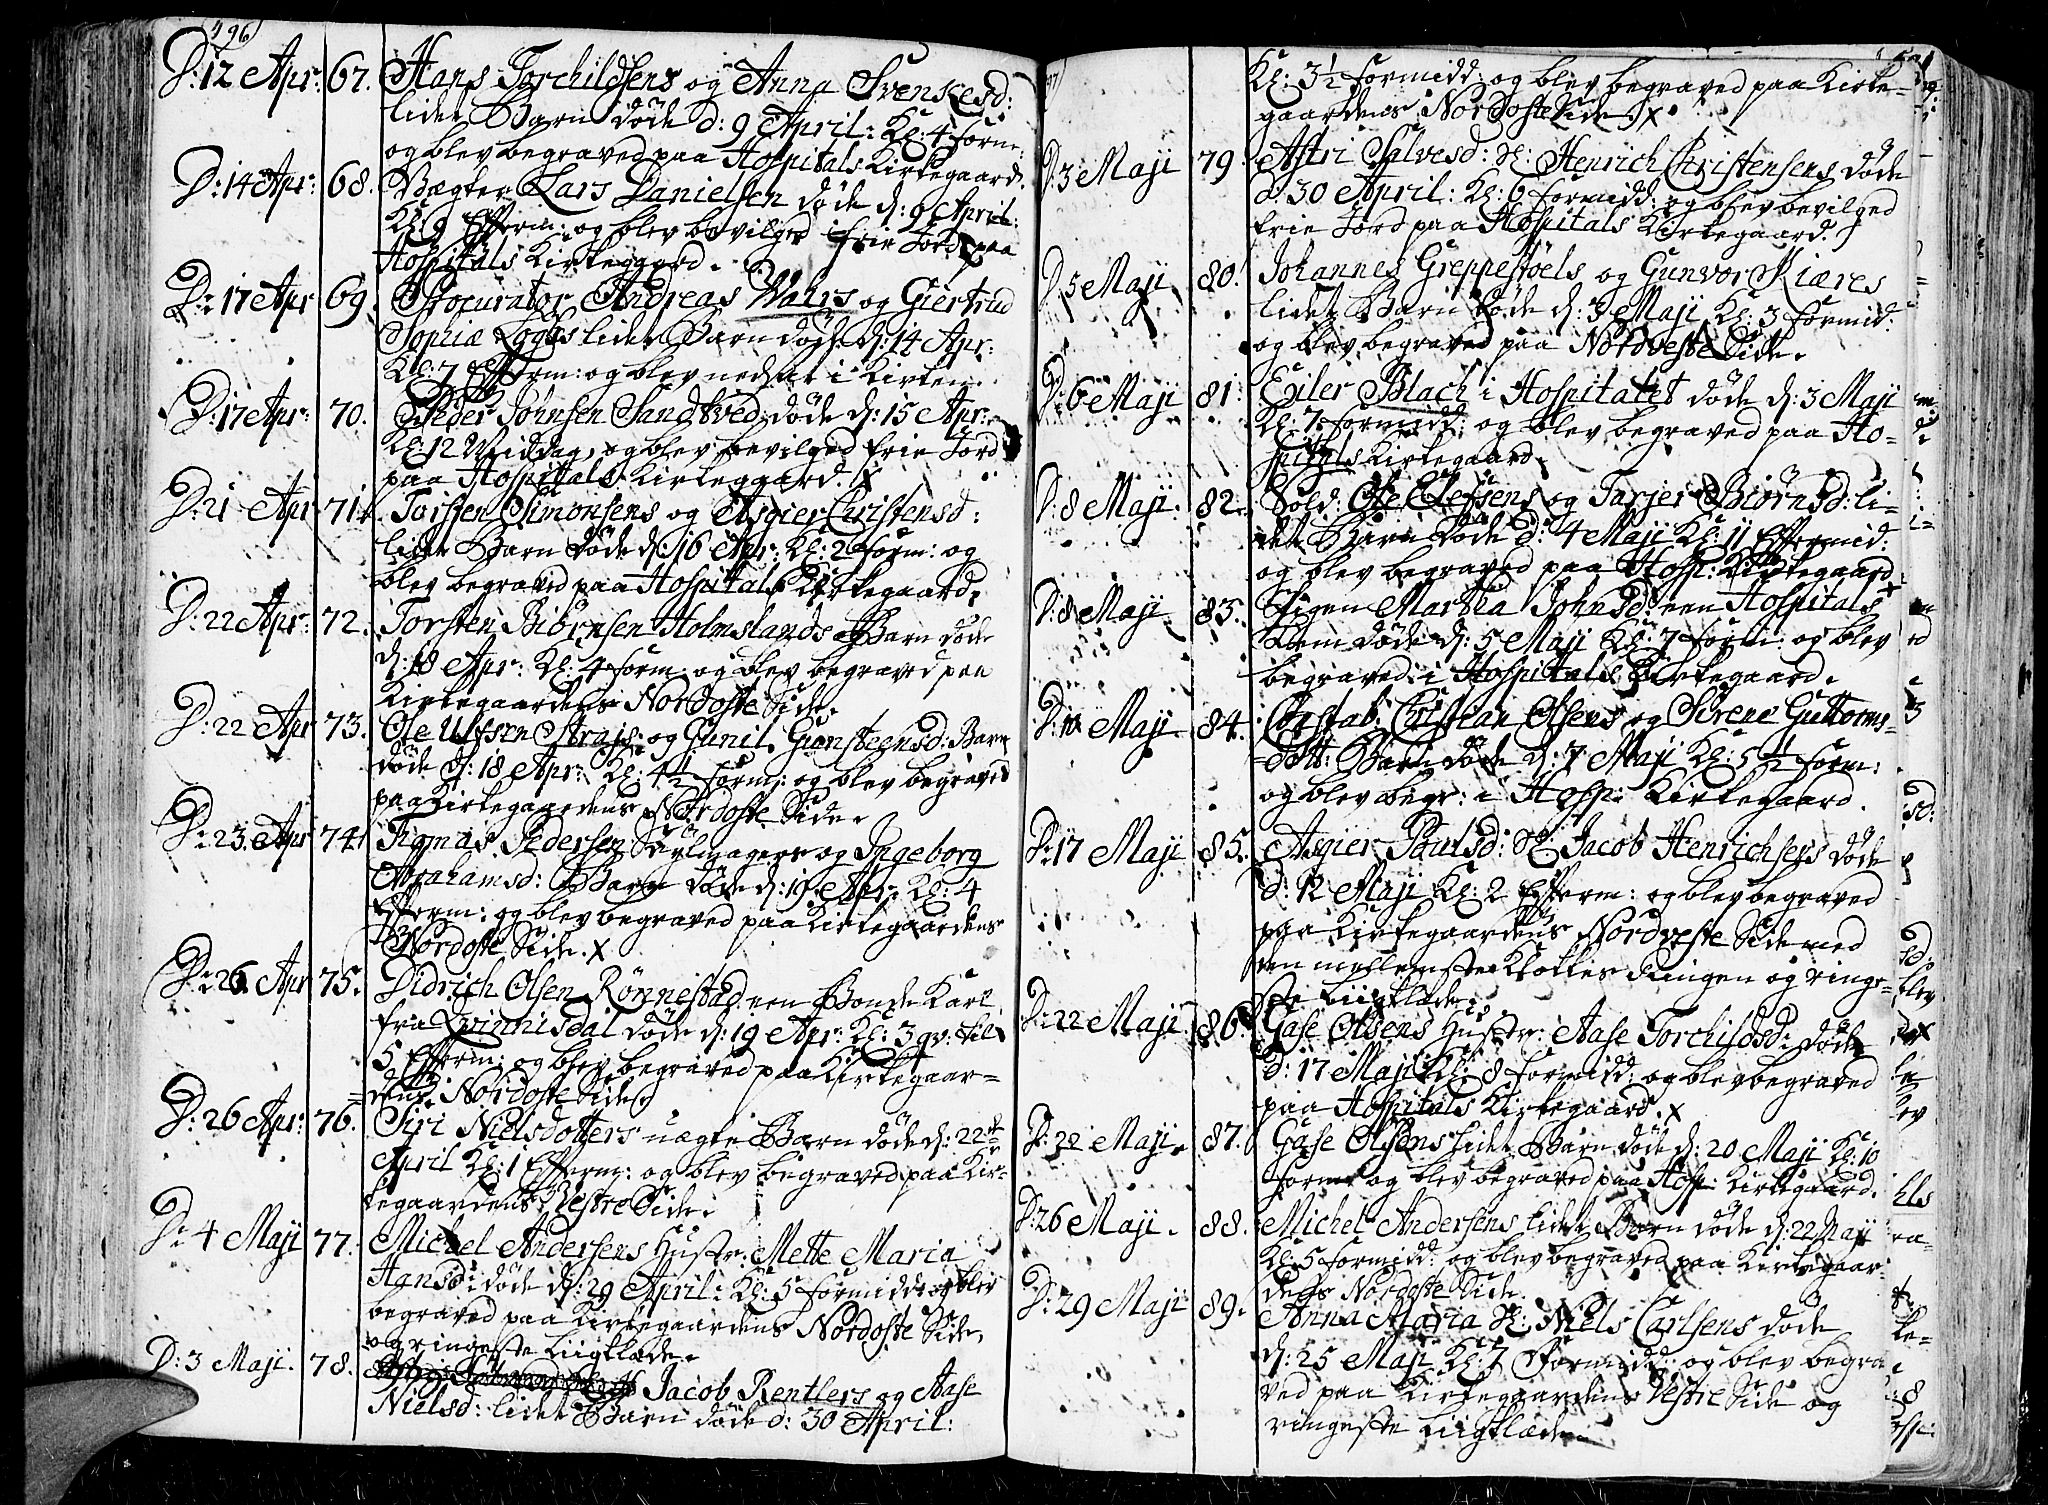 496
D: 12 Apr: 67. Hans Torchildsens og Anna Svenkesd:
lidet Barn døde d: 9 April: Kl: 4 form:
og blev begraved paa Hospitals Kirkegaard.
D: 14 Apr: 68. Vægter Lars Danielsen døde d: 9 April:
Kl: 9 Efterm: og blev bevilged frie Jord paa
Hospitals Kirkegaard.
D: 17 Apr 69. Procurator Andreas Wahrs og Giertrud
Sophia Lggs lidet Barn døde d: 14 Apr:
Kl: 7 Efterm: og blev nedsat i Kirken.
D: 17 Apr: 70. Peder Johnsen Sandtved døde d: 15 Apr:
Kl: 12 Middag, og blev bevilged frie Jord
paa Hospitals Kirkegaard. X
D: 21 Apr 71. Torsten Simonsens og Asgier Christensd:
lidet Barn døde d: 16 Apr: Kl: 2 form: og
blev begraved paa Hospitals Kirkegaard.
D: 22 Apr: 72. Torsten Biørnsen Holmslands Barn døde
d: 18 Apr: Kl: 4 form: og blev begraved paa
Kirkegaardens Nordoste Side.
D: 22 Apr 73. Ole Ulfsen Strajs og Gunil Gunsteensd: Barn
døde d: 18 Apr: Kl: 4½ form: og blev begraved
paa Kirkegaardens Nordoste Side.
D: 23 Apr 74. Tigmas Pedersen Seylmagers og Ingeborg
Abrahamsd: Barn døde d: 19 Apr: Kl: 4
Efterm: og blev begraved paa Kirkegaardens
Nordoste Side. X
D: 26 Apr 75. Didrich Olsen Rønnestad een Bonde Karl
fra Qvinnisdal døde d: 19 Apr: Kl: 3 qv: til
5 Efterm: og blev begraved paa Kirkegaar=
dens Nordoste Side.
D: 26 Apr: 76. Siri Nielsdotters uægte Barn døde d: 22de
April Kl: 1 Efterm: og blev begraved paa Kir=
kegaardens Vestre Side.
D: 4 Maji 77. Michel Andersens Hustr: Mette Maria
Hansd: døde d: 29 April: Kl: 5 formidd: og blev
begraved paa Kirkegaardens Nordoste Side,
og ringeste Liigklæde.
D: 3 Maji. 78. Jacob Rentlers og Aase
Nielsd: lidet Barn døde d: 30 April:
Kl: 3½ formidd: og blev begraved paa Kirke=
gaardens Nordoste Side. X
D: 3 Maji 79. Astri Salvesd: Sl: Henrich Christensens døde
d: 30 April: Kl: 6 formidd: og blev bevilged
frie Jord paa Hospitals Kirkegaard.
D: 5 Maji 80. Johannes Greppestøels og Gunvor Kiæres
lidet Barn døde d: 3 Maji Kl: 3 formid:
og blev begraved paa Nordveste Side.
D: 6 Maji 81. Eiler Blach i Hospitalet døde d: 3 Maji
Kl: 7 formidd: og blev begraved paa Ho=
spitals Kirkegaard.
D: 8 Maji 82. Sold: Ole Olefsens og Tarjer Biørnsd: li=
det Barn døde d: 4 Maji Kl: 11 Eftermid:
og blev begraved paa Hosp: Kirkegaard
D: 8 Maji 83. Pigen Martha Johnsd: een Hospitals
Lem døde d: 5 Maji Kl: 7 form: og blev
begraved i Hospitals Kirkegaard.
D: 11 Maji 84. Constab: Christian Olsens og Sirene Guttorms=
=dott: Barn døde d: 7 Maji Kl: 5½ form:
og blev begr: i Hosp: Kirkegaard.
D: 17 Maji 85. Asgier Poulsd: Sl: Jacob Henrichsens døde
d: 12 Maji Kl: 2 Efterm: og blev begraved
paa Kirkegaardens Nordveste Side med
den mellemste Klokkes Ringen og ringe=
ste Liigklæde.
D: 22 Maji 86. Gase Olsens Hustr: Aase Torchildsd: døde
d: 17 Maji Kl: 8 formidd: og blev begraved
paa Hospitals Kirkegaard. X
D: 22 Maji 87. Gase Olsens lidet Barn døde d: 20 Maji Kl: 10
form: og blev begraved paa Hosp: Kirkegaard.
D: 26 Maji. 88. Michel Andersens lidet Barn døde d: 22 Maji
Kl: 5 formidd: og blev begraved paa Kirkegaar=
dens Nordoste Side.
D: 29 Maji 89. Anna Maria Sl: Niels Carlsens døde
d: 25 Maji Kl: 7 Formidd: og blev begra
ved paa Kirkegaardens Vestre Side og
ringeste Liigklæde.